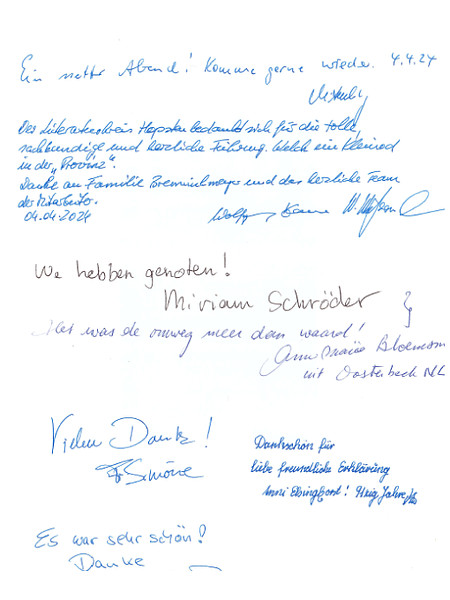 Ein netter Abend! Komme gerne wieder. 4.4.24
Der Literaturkreis bedankt sich für die tolle,
sachkundige und herzliche Führung. Welch ein Kleinod
in der "Provinz".
Danke an Familie und das herzliche Team
der Mitarbeiter.
04.04.2024
We hebben genoten!
Miriam Schröder
Het was de omweg meer dan waard!
Anne Marie
uit Oosterbeek NL
Vielen Dank!
Simone
Dankschön für
liebe freundliche Erklärung
Es war sehr schön!
Danke